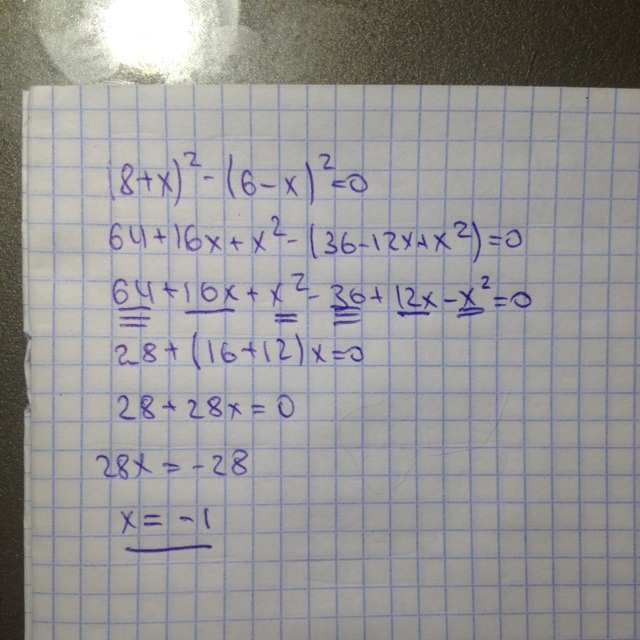 (8+x)²-(6-x)²=0
64+16x+x²-(36-12x+x²)=0
64+16x+x²-36+12x-x²=0
28+(16+12)x=0
28+28x=0
28x=-28
x=-1